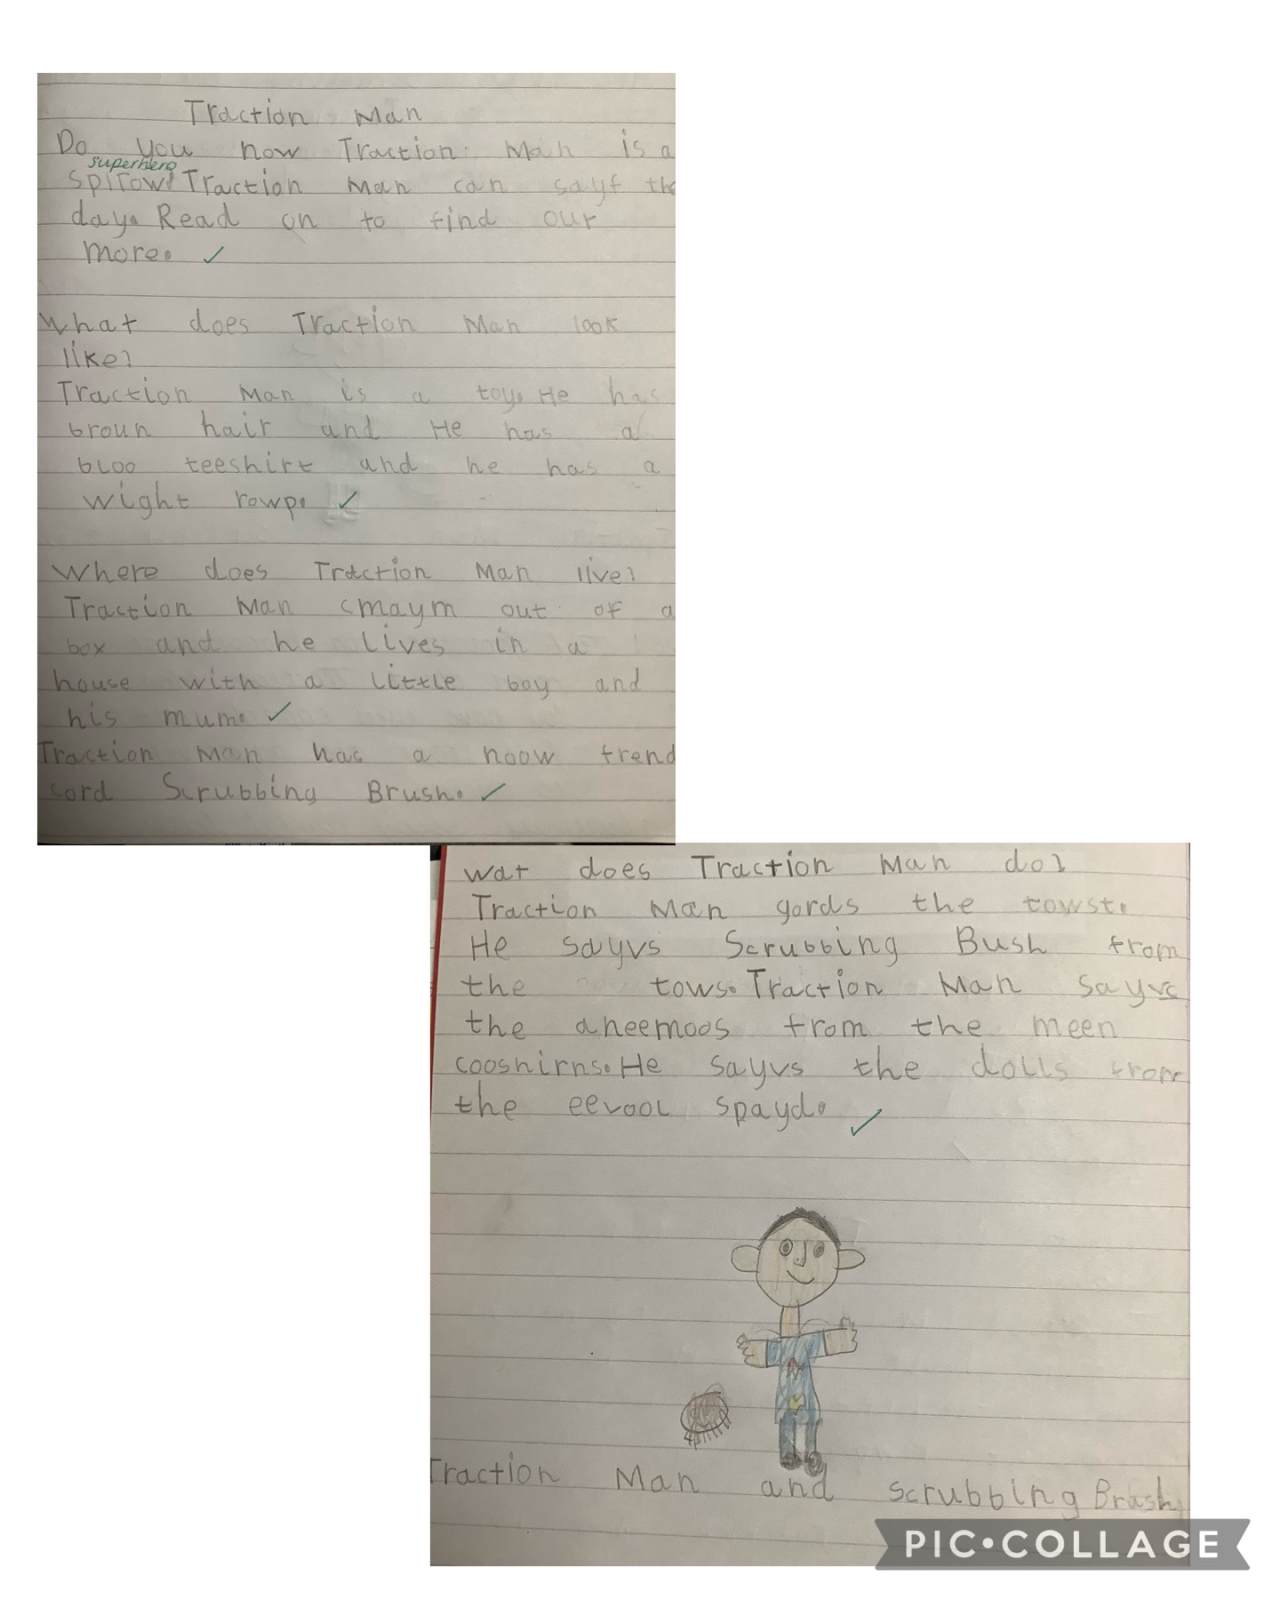 Traction Man
Do you now Traction Man is a
superhero
spirow Traction Man can sayf the
day. Read on to find our
more.
What does Traction Man look
like?
Traction Man is a toy. He has
broun hair and He has a
bloo teeshirt and he has a
wight rowp.
Where does Traction Man live?
Traction Man cmaym out of a
box and he lives in a
house with a little boy and
his mum.
Traction Man has a noow frend
cord Scrubbing Brush.
wat does Traction Man do?
Traction Man gords the towst.
He sayvs Scrubbing Bush from
the tows. Traction Man sayvs
the aneemoos from the meen
cooshirns. He sayvs the dolls from
the eevool spayd.
Traction Man and scrubbing Brash
PIC•COLLAGE